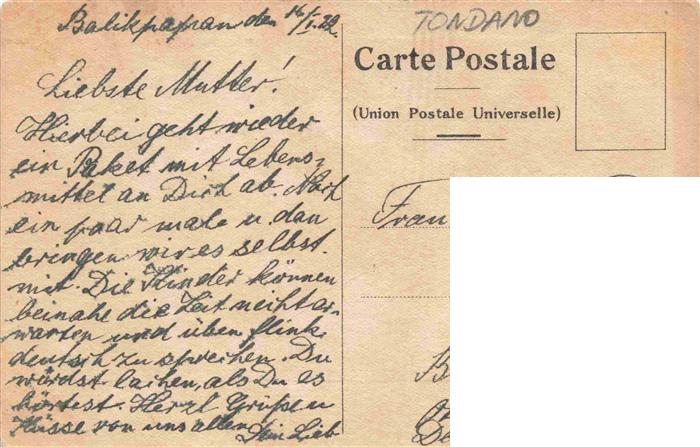 Balikpapan den 16/I.22.
Liebste Mutter!
Hierbei geht wieder
ein Paket mit Lebens-
mittel an Dich ab. Noch
ein paar male u. dan
bringen wir es selbst
mit. Die Kinder können
beinahe die Zeit nicht er-
warten und üben flink
deutsch zu sprechen. Du
würdst lachen, als Du es
hörtest. Herzl Grüße u
Küsse von uns allen Dein Lieb
TONDANO
Carte Postale
(Union Postale Universelle)
Frau